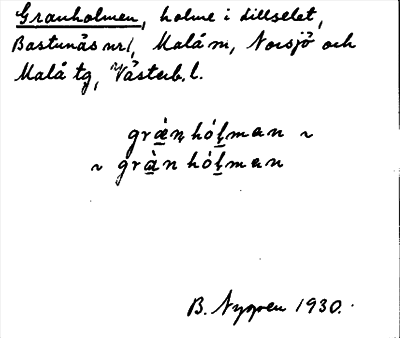 Granholmen, holme i Lillselet,
Bastunäs nr 1, Malå sn, Norsjö och
Malå tg, Västerb. l.
græ̀nhóḷman ~
~ grànhóḷman
B. Nygren 1930.